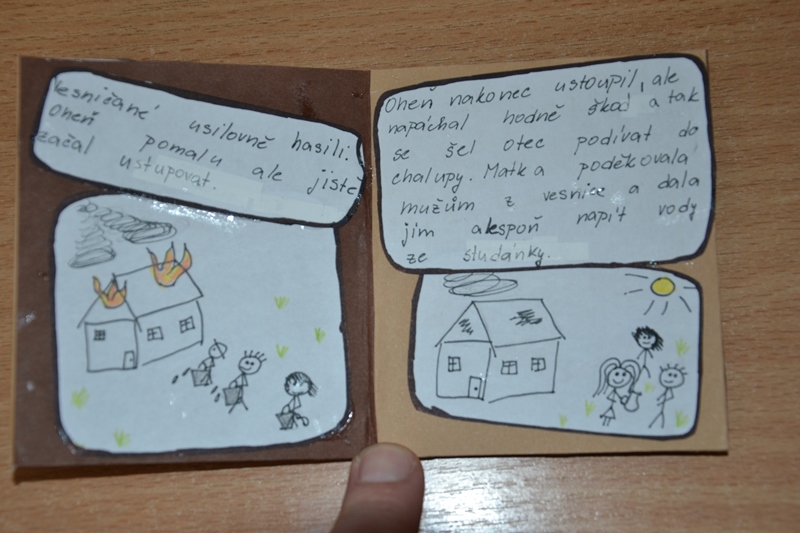 Vesničané usilovně hasili.
Oheň pomalu ale jistě
začal ustupovat.
Oheň nakonec ustoupil, ale
napáchal hodně škod a tak
se šel otec podívat do
chalupy. Matka poděkovala
mužům z vesnice a dala
jim alespoň napít vody
ze studánky.